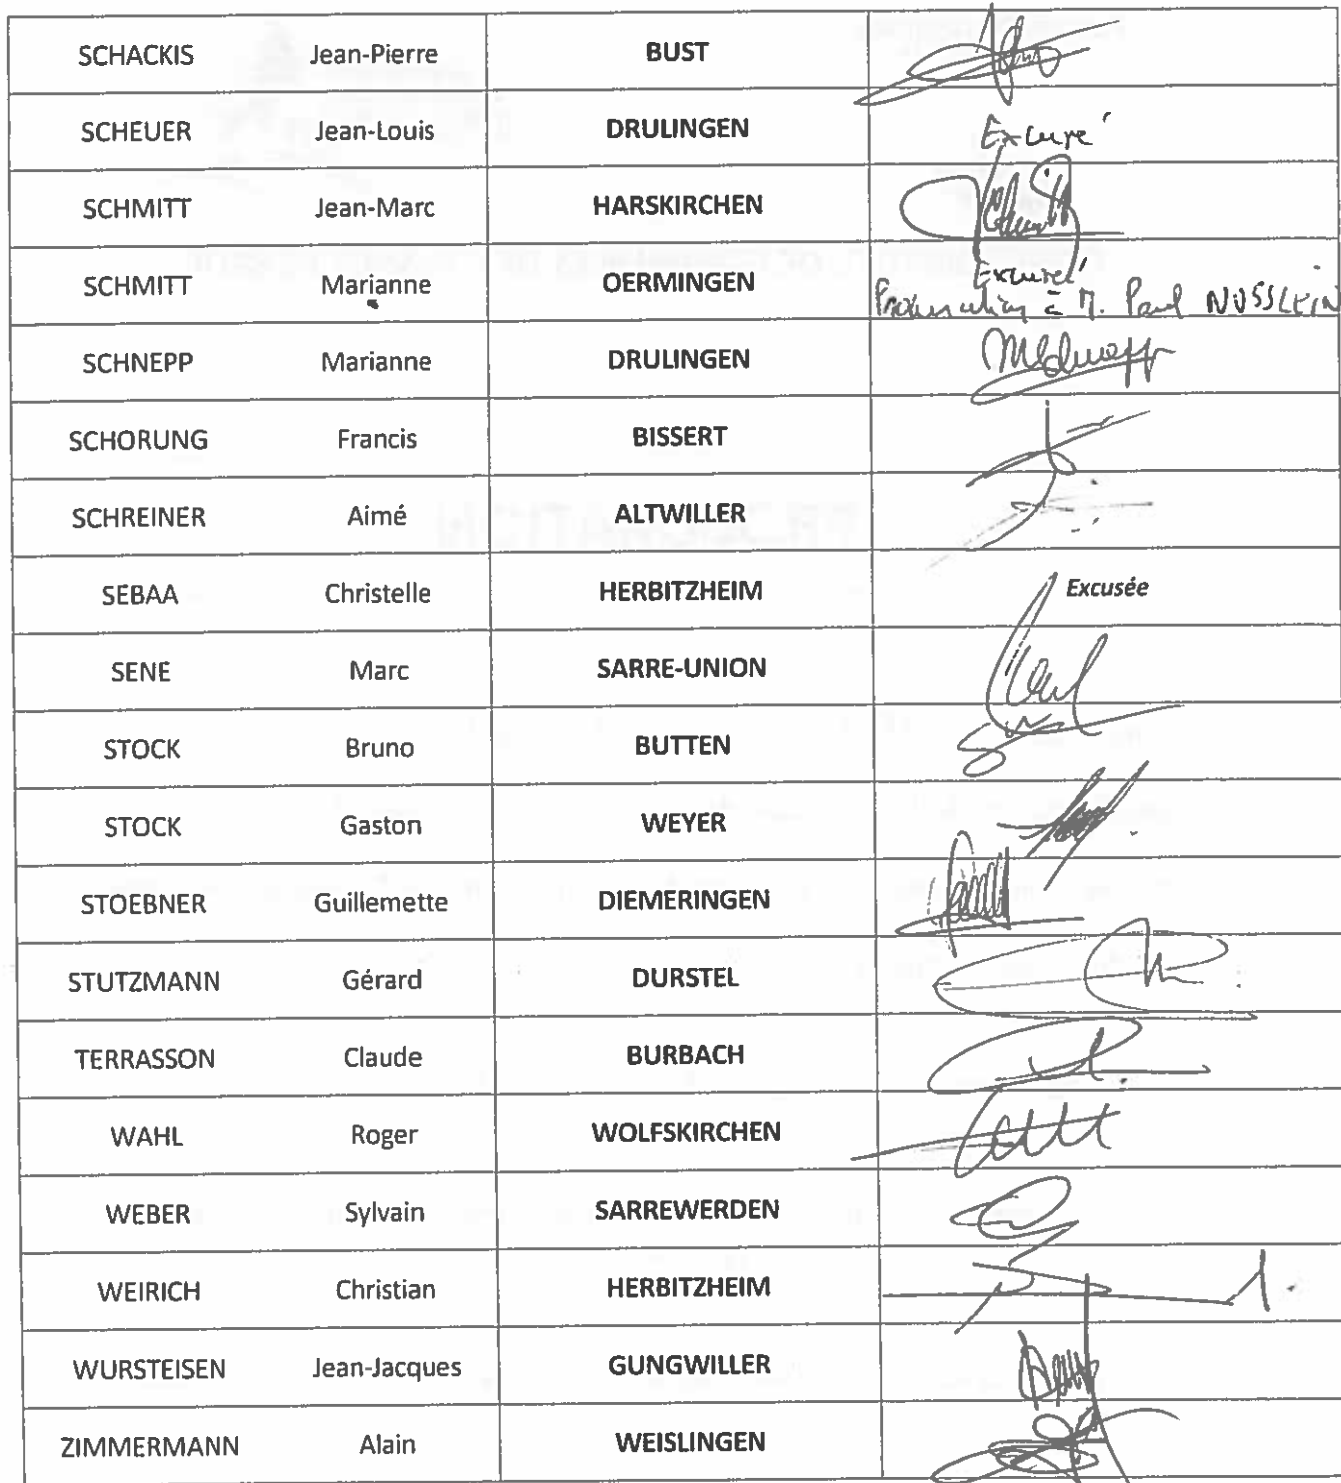 SCHACKIS Jean-Pierre BUST
SCHEUER Jean-Louis DRULINGEN Excusé
SCHMITT Jean-Marc HARSKIRCHEN
SCHMITT Marianne OERMINGEN Excusé
Procuration à M. Paul NUSSLEIN
SCHNEPP Marianne DRULINGEN
SCHORUNG Francis BISSERT
SCHREINER Aimé ALTWILLER
SEBAA Christelle HERBITZHEIM Excusée
SENE Marc SARRE-UNION
STOCK Bruno BUTTEN
STOCK Gaston WEYER
STOEBNER Guillemette DIEMERINGEN
STUTZMANN Gérard DURSTEL
TERRASSON Claude BURBACH
WAHL Roger WOLFSKIRCHEN
WEBER Sylvain SARREWERDEN
WEIRICH Christian HERBITZHEIM
WURSTEISEN Jean-Jacques GUNGWILLER
ZIMMERMANN Alain WEISLINGEN